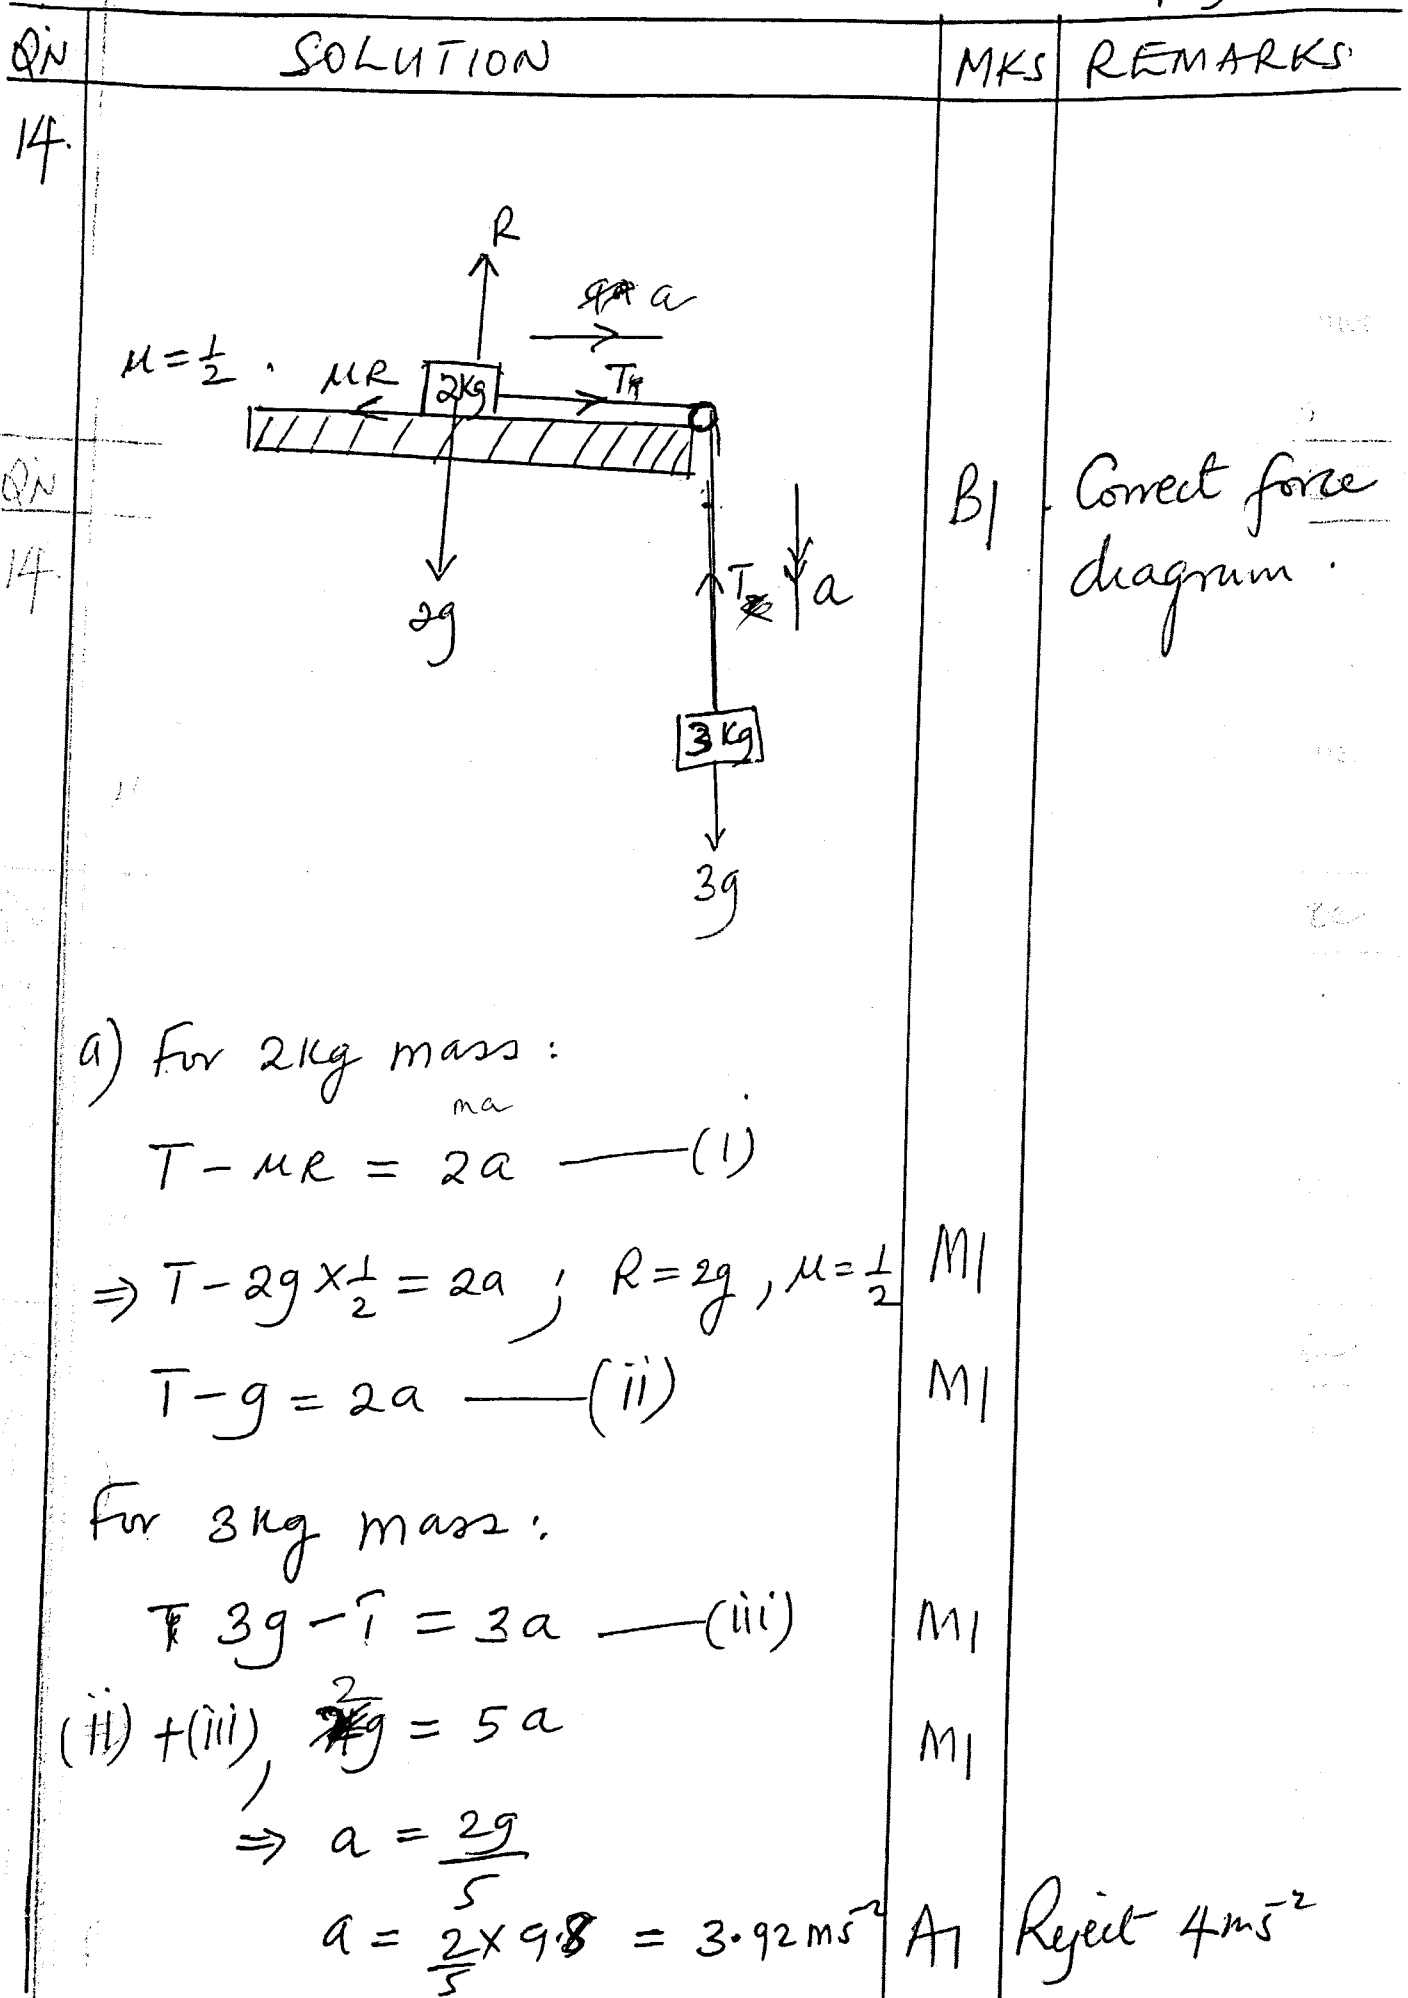 QN SOLUTION MKS REMARKS
14.
R
a
μ = 1/2 . μR 2kg T
QN
B1 . Correct force
14. 2g T a diagram .
3 kg
3g
a) For 2kg mass :
ma
T - μR = 2a —(i)
⇒ T - 2g × 1/2 = 2a ; R = 2g , μ = 1/2 M1
T - g = 2a —(ii) M1
For 3kg mass :
3g - T = 3a —(iii) M1
(ii) + (iii), 2g = 5a M1
⇒ a = 2g/5
a = 2/5 × 9.8 = 3.92 ms⁻² A1 Reject 4ms⁻²